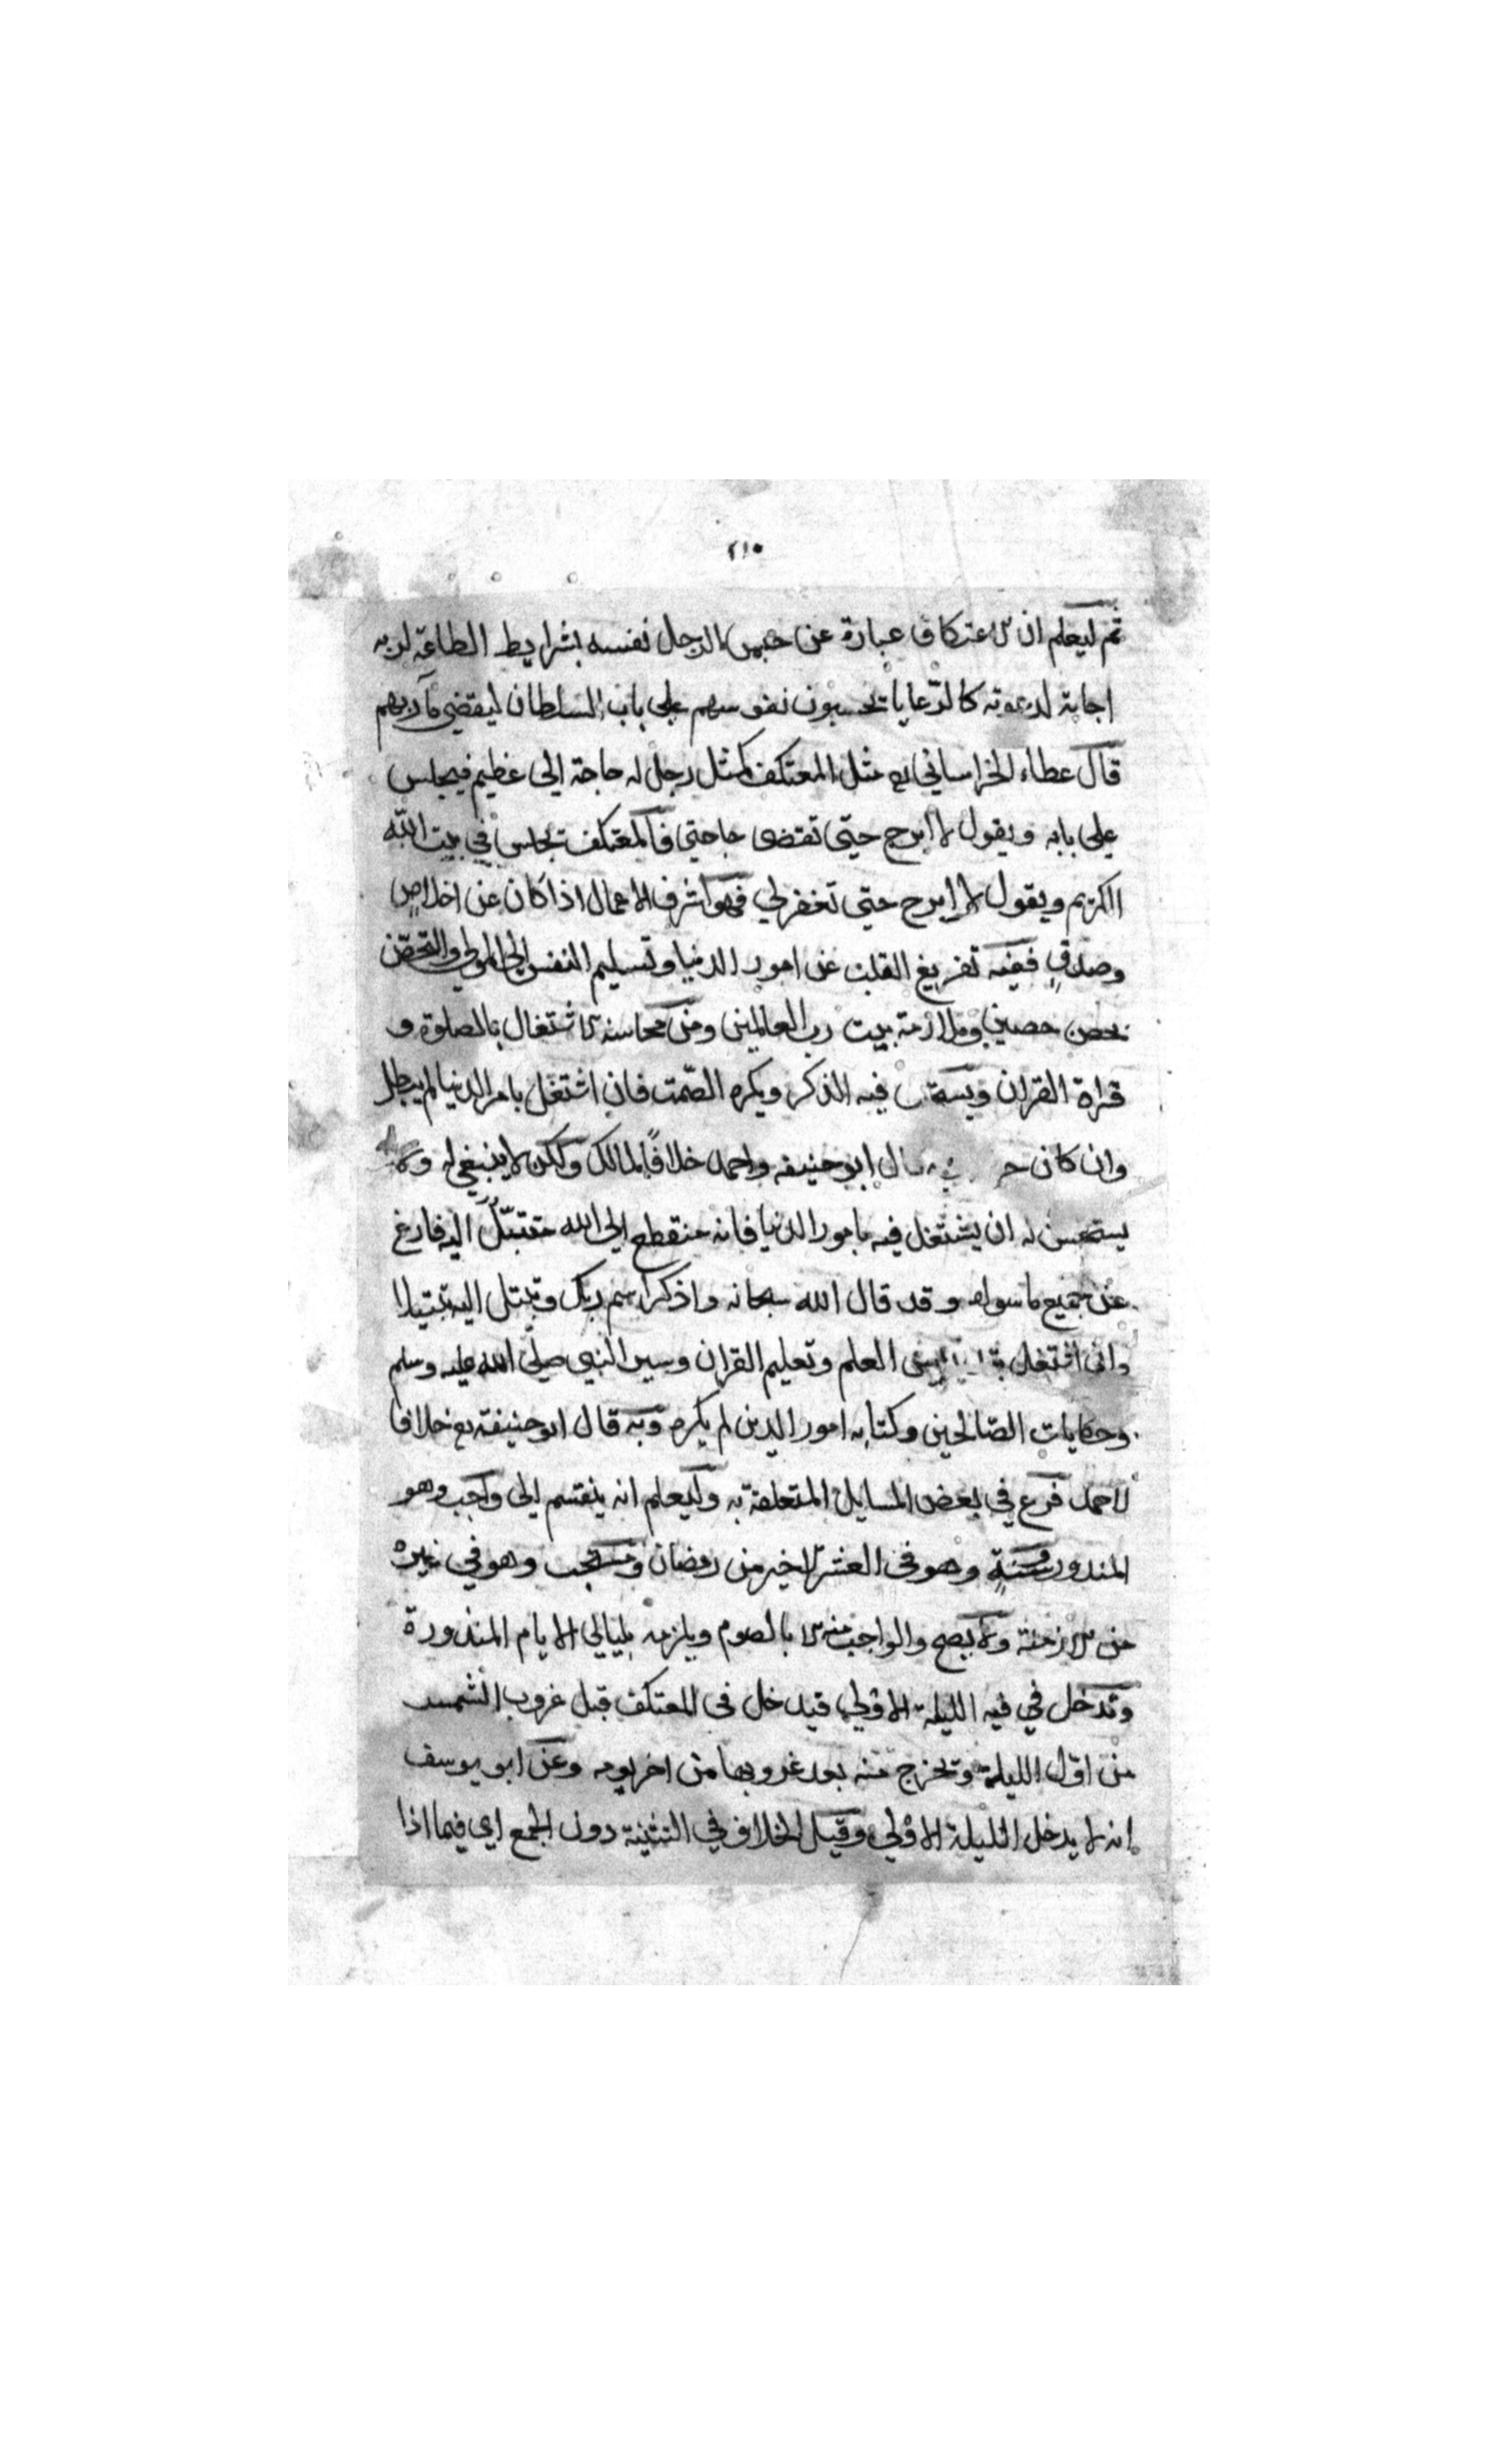 ٢١٠
ثم ليعلم ان الاعتكاف عبارة عن حبس الرجل نفسه بشرايط الطاعة لربه
اجابة لدعوته كالرعايا يحبسون نفوسهم على باب السلطان ليقضي مآربهم
قال عطاء الخراساني رح مثل المعتكف كمثل رجل له حاجة الى عظيم فيجلس
على بابه ويقول لا ابرح حتى تقضى حاجتي فالمعتكف يجلس في بيت الله
الكريم ويقول لا ابرح حتى تغفر لي فهو اشرف الاعمال اذا كان عن اخلاصٍ
وصدقٍ ففيه تفريغ القلب عن امور الدنيا وتسليم النفس الى المولى والتحصّن
بحصن حصين وملازمة بيت رب العالمين ومن محاسنه الاشتغال بالصلوة و
قراة القران فيه الذكر ويكره الصّمت فان اشتغل بامر الدنيا لم يبطل
وان كان قال ابو حنيفه واحمد خلافًا لمالك ولكن لا ينبغي له ولا
يستحسن له ان يشتغل فيه بامور الدنيا فانه منقطع الى الله متبتّلٌ اليه فارغ
عن جميع ما سواه وقد قال الله سبحانه واذكر اسم ربك وتبتل اليه تبتيلا
وان اشتغل العلم وتعليم القران وسير النبى صلى الله عليه وسلم
وحكايات الصّالحين وكتابه امور الدين لم يكره وبه قال ابو حنيفة رح خلافا
لاحمد فرع في بعض المسايل المتعلقة به وليعلم انه ينقسم الى واجب وهو
المندور وسنةٍ وهو فى العشر الاخير من رمضان ومستحب وهو في غيره
من الازمنة ولا يصح والواجب منه الا بالصوم ويلزمه بليالي الايام المندورة
وتدخل في فيه الليلة الاولى فيدخل فى المعتكف قبل غروب الشمس
من اوّل الليلة ويخرج منه بعد غروبها من اخر يومه وعن ابو يوسف
انه لا يدخل الليلة الاولى وقيل الخلاف في التثنية دون الجمع اي فيما اذا